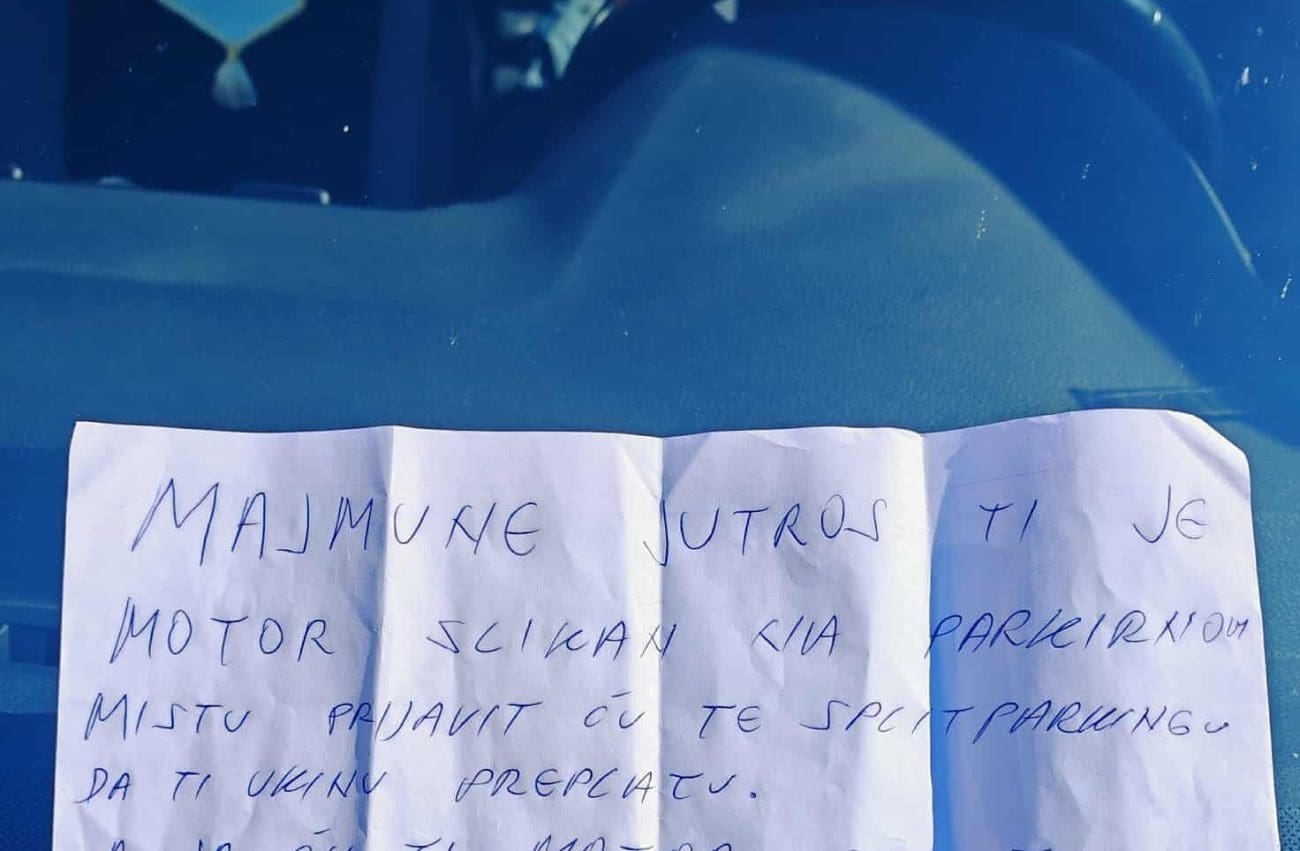 MAJMUNE JUTROS TI JE
MOTOR SLIKAN NA PARKIRNOM
MISTU PRIJAVIT ĆU TE SPLITPARKINGU
DA TI UKINU PREPLATU.
A JA ĆU TI MOTOR